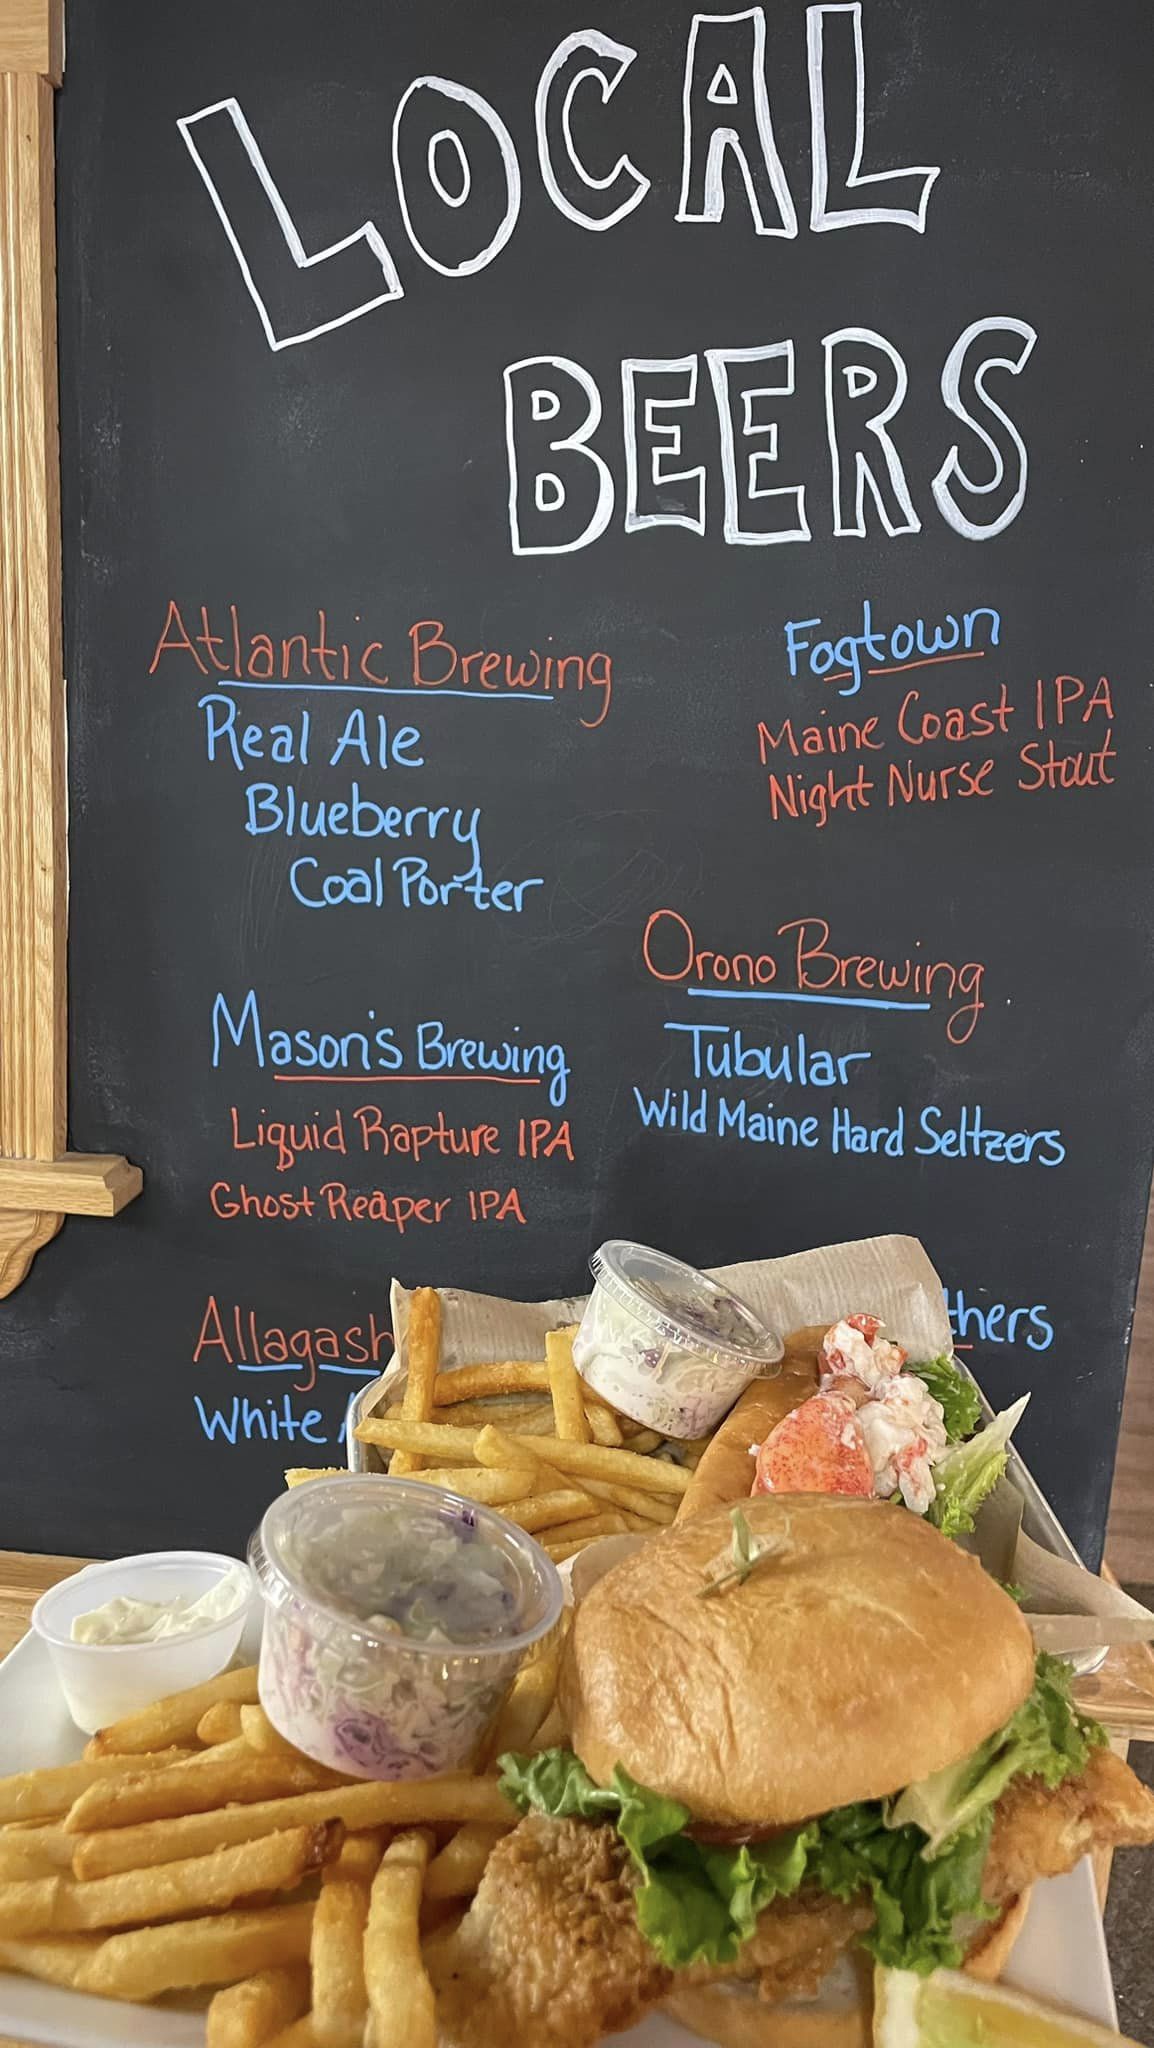 LOCAL
BEERS
Atlantic Brewing
Real Ale
Blueberry
Coal Porter
Fogtown
Maine Coast IPA
Night Nurse Stout
Mason's Brewing
Liquid Rapture IPA
Ghost Reaper IPA
Orono Brewing
Tubular
Wild Maine Hard Seltzers
Allagash
White
thers